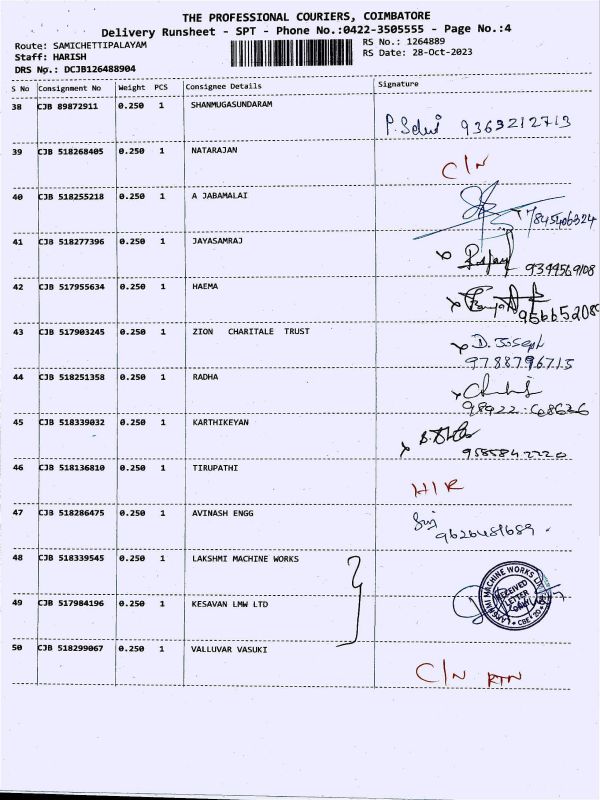 THE PROFESSIONAL COURIERS, COIMBATORE
Delivery Runsheet - SPT - Phone No.:0422-3505555 - Page No.:4
Route: SAMICHETTIPALAYAM RS No.: 1264889
Staff: HARISH RS Date: 28-Oct-2023
DRS No.: DCJB126488904
S No Consignment No Weight PCS Consignee Details Signature
38 CJB 89872911 0.250 1 SHANMUGASUNDARAM
P. Selvi 9363212713
39 CJB 518268405 0.250 1 NATARAJAN
C/N
40 CJB 518255218 0.250 1 A JABAMALAI
7845406324
41 CJB 518277396 0.250 1 JAYASAMRAJ
9344569108
42 CJB 517955634 0.250 1 HAEMA
956652089
43 CJB 517903245 0.250 1 ZION CHARITALE TRUST
D. Joseph
9788796713
44 CJB 518251358 0.250 1 RADHA
98922 68626
45 CJB 518339032 0.250 1 KARTHIKEYAN
9585842220
46 CJB 518136810 0.250 1 TIRUPATHI
H/R
47 CJB 518286475 0.250 1 AVINASH ENGG
9626481689
48 CJB 518339545 0.250 1 LAKSHMI MACHINE WORKS
LAKSHMI MACHINE WORKS
RECEIVED
LETTER
ONLY
CBE
20
49 CJB 517984196 0.250 1 KESAVAN LMW LTD
50 CJB 518299067 0.250 1 VALLUVAR VASUKI
C/N RTN